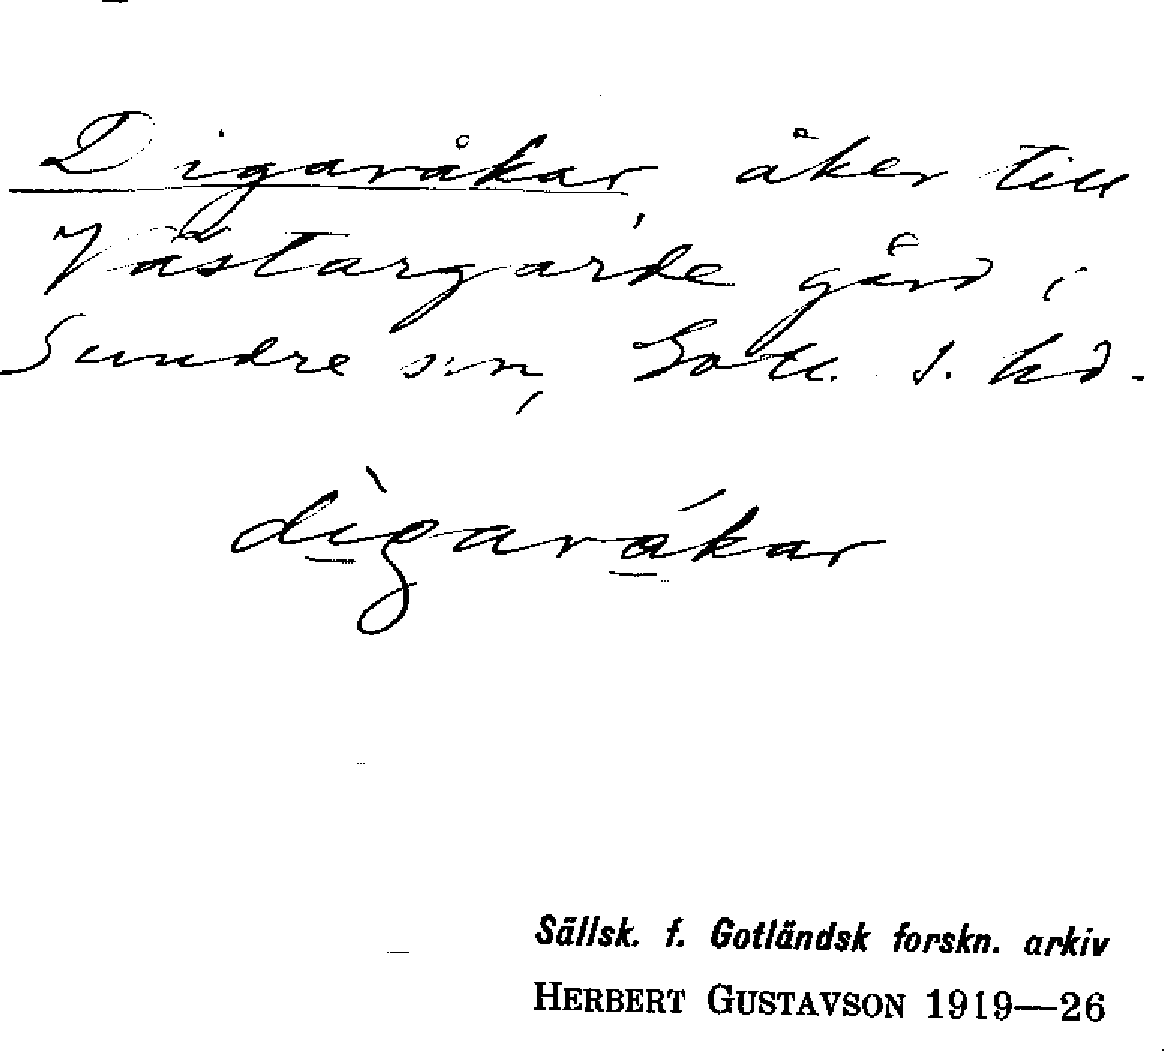 Digaråkar, åker till
Västargårde gård i
Sundre sn, Gotl. s. hd.
dìgaråkar
Sällsk. f. Gotländsk forskn. arkiv
HERBERT GUSTAVSON 1919—26